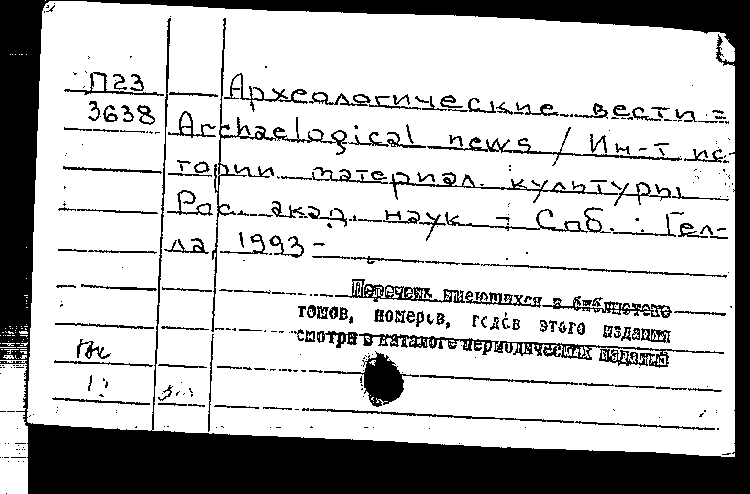 П23
3638
Археологические вести =
Archaelogical news / Ин-т ис-
тории материал. культуры
Рос. акад. наук - Спб. : Гел-
ла, 1993 -
Перечень имеющихся в библиотеке
томов, номеров, годов этого издания
смотри в каталоге периодических изданий